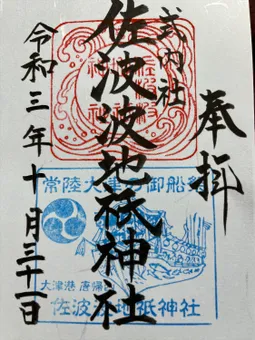 奉拝
式内社
佐波波地祇神社
令和三年十月三十一日
常陸大津の御船祭
大津港 唐帰山
佐波波地祇神社